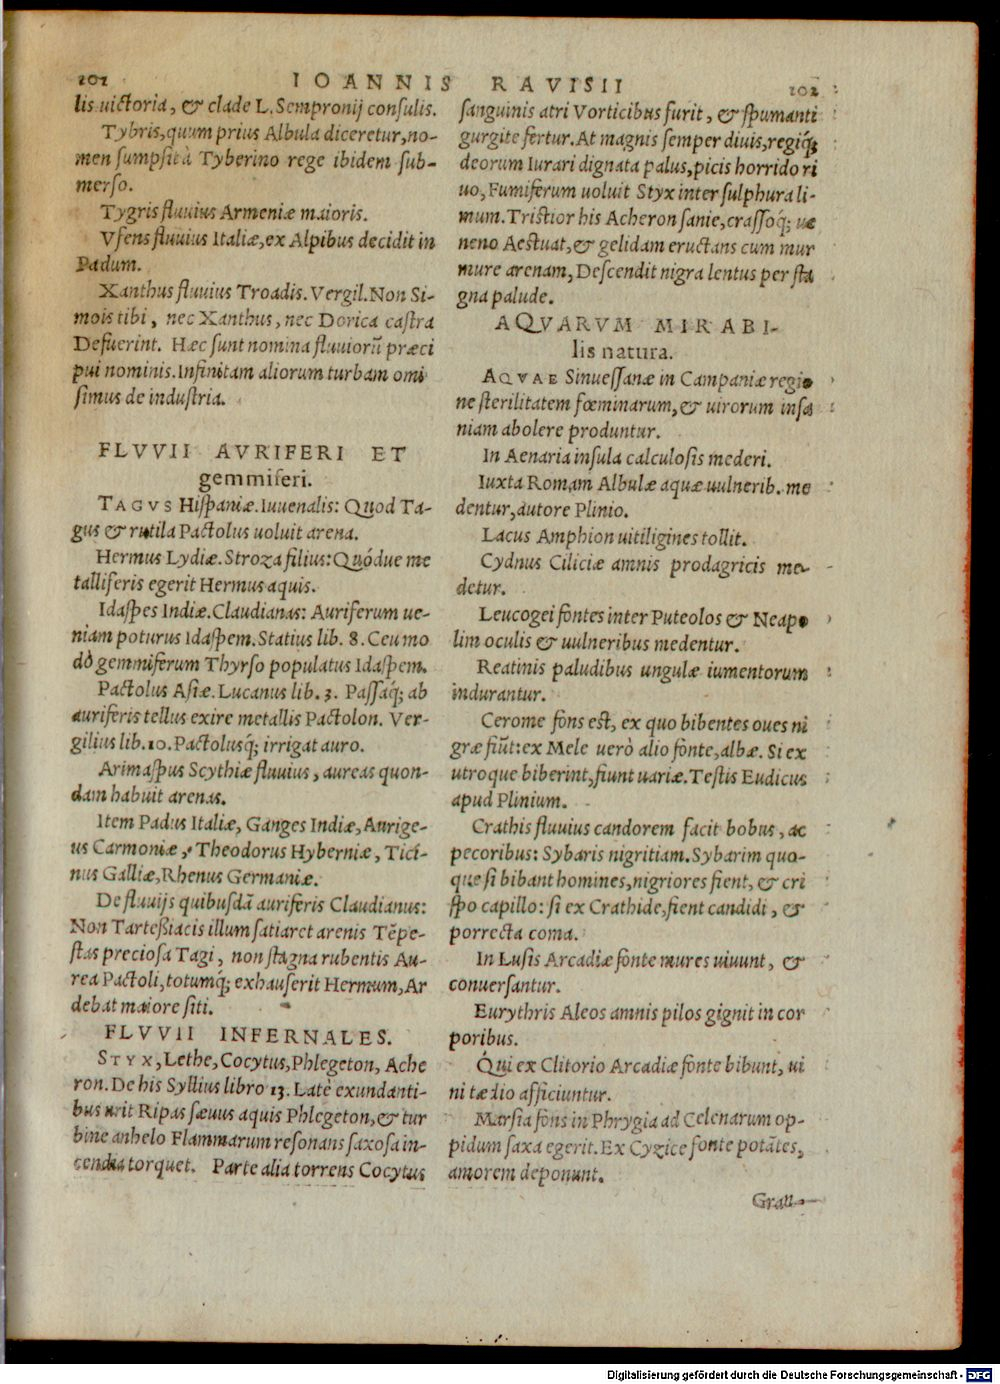 101 IOANNIS RAVISII 102
lis uictoria, & clade L. Sempronij consulis.
Tybris, quum prius Albula diceretur, no-
men sumpsit à Tyberino rege ibidem sub-
merso.
Tygris fluuius Armeniæ maioris.
Vfens fluuius Italiæ, ex Alpibus decidit in
Padum.
Xanthus fluuius Troadis. Vergil. Non Si-
mois tibi, nec Xanthus, nec Dorica castra
Defuerint. Hæc sunt nomina fluuiorũ præci
pui nominis. Infinitam aliorum turbam omi
simus de industria.
FLVVII AVRIFERI ET
gemmiferi.
TAGVS Hispaniæ. Iuuenalis: Quod Ta-
gus & rutila Pactolus uoluit arena.
Hermus Lydiæ. Stroza filius: Quódue me
talliferis egerit Hermus aquis.
Idaspes Indiæ. Claudianas: Auriferum ue-
niam poturus Idaspem. Statius lib. 8. Ceu mo
dò gemmiferum Thyrso populatus Idaspem.
Pactolus Asiæ. Lucanus lib. 3. Passaq́; ab
auriferis tellus exire metallis Pactolon. Ver-
gilius lib. 10. Pactolusq́; irrigat auro.
Arimaspus Scythiæ fluuius, aureas quon-
dam habuit arenas.
Item Padus Italiæ, Ganges Indiæ, Aurige-
us Carmoniæ, Theodorus Hyberniæ, Tici-
nus Galliæ, Rhenus Germaniæ.
De fluuijs quibusdã auriferis Claudianus:
Non Tarteßiacis illum satiaret arenis Tẽpe-
stas preciosa Tagi, non stagna rubentis Au-
rea Pactoli, totumq́; exhauserit Hermum, Ar
debat maiore siti.
FLVVII INFERNALES.
STYX, Lethe, Cocytus, Phlegeton, Ache
ron. De his Syllius libro 13. Latè exundanti-
bus urit Ripas sæuus aquis Phlegeton, & tur
bine anhelo Flammarum resonans saxosa in-
cendia torquet. Parte alia torrens Cocytus
sanguinis atri Vorticibus furit, & spumanti
gurgite fertur. At magnis semper diuis, regiq́;
deorum Iurari dignata palus, picis horrido ri
uo, Fumiferum uoluit Styx inter sulphura li-
mum. Tristior his Acheron sanie, crassoq́; ue
neno Aestuat, & gelidam eructans cum mur
mure arenam, Descendit nigra lentus per sta
gna palude.
AQVARVM MIRABI-
lis natura.
AQVAE Sinuessanæ in Campaniæ regio
ne sterilitatem fœminarum, & uirorum insa
niam abolere produntur.
In Aenaria insula calculosis mederi.
Iuxta Romam Albulæ aquæ uulnerib. me
dentur, autore Plinio.
Lacus Amphion uitiligines tollit.
Cydnus Ciliciæ amnis prodagricis me-
detur.
Leucogei fontes inter Puteolos & Neapo
lim oculis & uulneribus medentur.
Reatinis paludibus ungulæ iumentorum
indurantur.
Cerome fons est, ex quo bibentes oues ni
græ fiũt: ex Mele uerò alio fonte, albæ. Si ex
utroque biberint, fiunt uariæ. Testis Eudicus
apud Plinium.
Crathis fluuius candorem facit bobus, ac
pecoribus: Sybaris nigritiam. Sybarim quo-
que si bibant homines, nigriores fient, & cri
spo capillo: si ex Crathide, fient candidi, &
porrecta coma.
In Lusis Arcadiæ fonte mures uiuunt, &
conuersantur.
Eurythris Aleos amnis pilos gignit in cor
poribus.
Qui ex Clitorio Arcadiæ fonte bibunt, ui
ni tædio afficiuntur.
Marsia fons in Phrygia ad Celenarum op-
pidum saxa egerit. Ex Cyzice fonte potãtes,
amorem deponunt.
Gran-
Digitalisierung gefördert durch die Deutsche Forschungsgemeinschaft - DFG